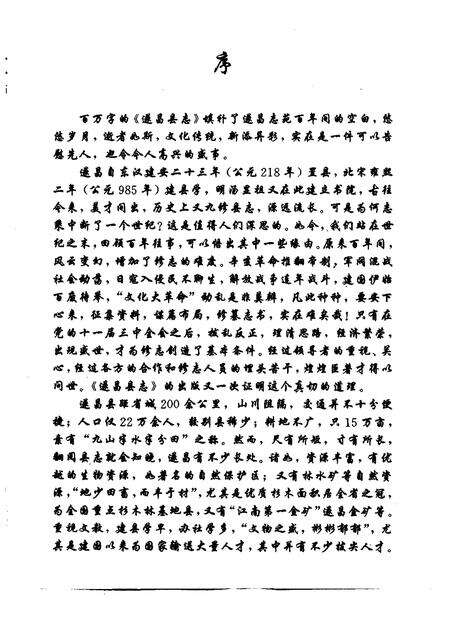 序
百万字的《遂昌县志》填补了遂昌志苑百年间的空白,悠
悠岁月,逝者如斯,文化传统,新添异彩,实在是一件可以告
慰先人,也令今人高兴的盛事。
遂昌自东汉建安二十三年(公元218年)置县,北宋雍熙
二年(公元985年)建县学,明汤显祖又在此建立书院,古往
今来,英才间出,历史上又九修县志,源远流长。可是为何志
乘中断了一个世纪?这是值得人们深思的。如今,我们站在世
纪之末,回顾百年往事,可以悟出其中一些缘由。原来百年间,
风云变幻,增加了修志的难度。辛亥革命推翻帝制,军阀混战
社会动荡,日寇入侵民不聊生,解放战争连年战火,建国伊始
百废待举,“文化大革命”动乱是非莫辨,凡此种种,要安下
心来,征集资料,谋篇布局,修纂志书,实在难矣哉!只有在
党的十一届三中全会之后,拨乱反正,理清思路,经济繁荣,
出现盛世,才为修志创造了基本条件。经过领导者的重视、关
心,经过各方的合作和修志人员的埋头苦干,煌煌巨著才得以
问世。《遂昌县志》的出版又一次证明这个真切的道理。
遂昌县距省城200余公里,山川阻隔,交通并不十分便
捷;人口仅22万余人,较别县稀少;耕地不广,只15万亩,
素有“九山半水半分田”之称。然而,尺有所短,寸有所长,
翻阅县志就会知晓,遂昌有不少长处。诸如,资源丰富,有优
越的生物资源,如著名的自然保护区;又有林水矿等自然资
源,“地少田畜,而丰于材”,尤其是优质杉木面积居全省之冠,
为全国重点杉木林基地县,又有“江南第一金矿”遂昌金矿等。
重视文教,建县学早,办社学多,“文物之盛,彬彬郁郁”,尤
其是建国以来为国家输送大量人才,其中并有不少拔尖人才。